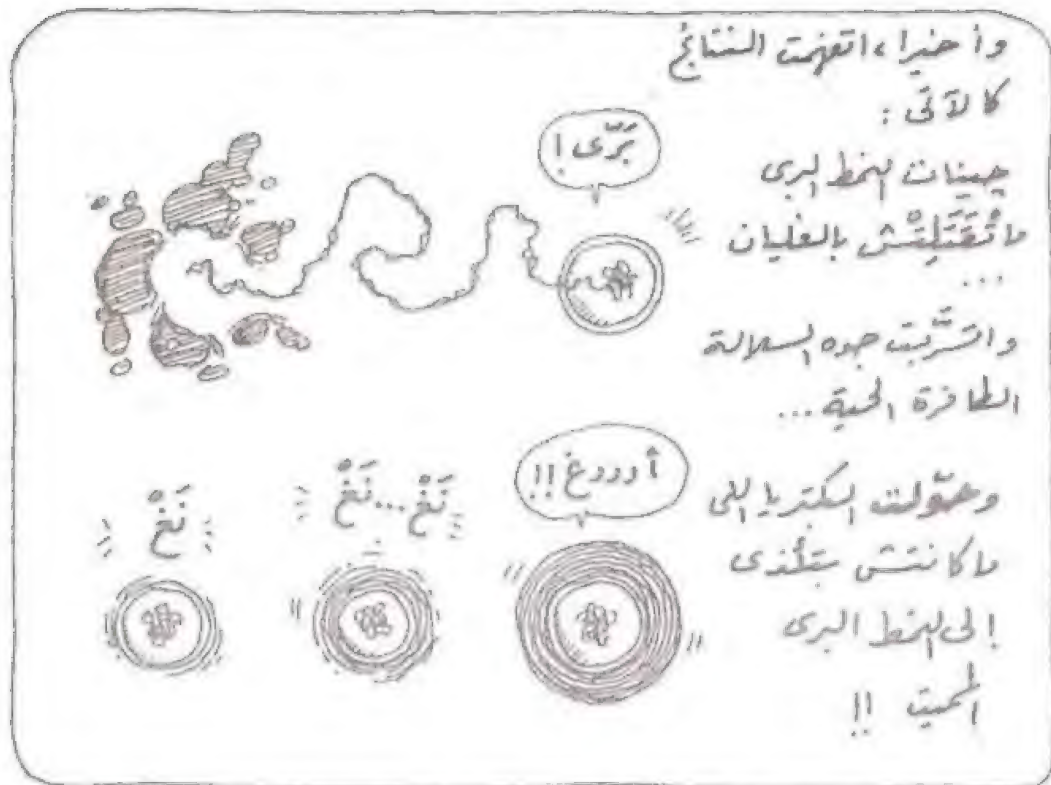 وأخيرا، اتفهمت النتائج
كالآتى :
چينات النمط البرى
ماتْقَتَلِتْش بالغليان
...
واتسرَّبت جوه السلالة
الطافرة الحية...
وحوّلت البكتريا اللى
ماكانتش بتأذى
إلى النمط البرى
المميت !!
بَرّى !
أوددغ !!
نَغْ...نَغْ
نَغْ